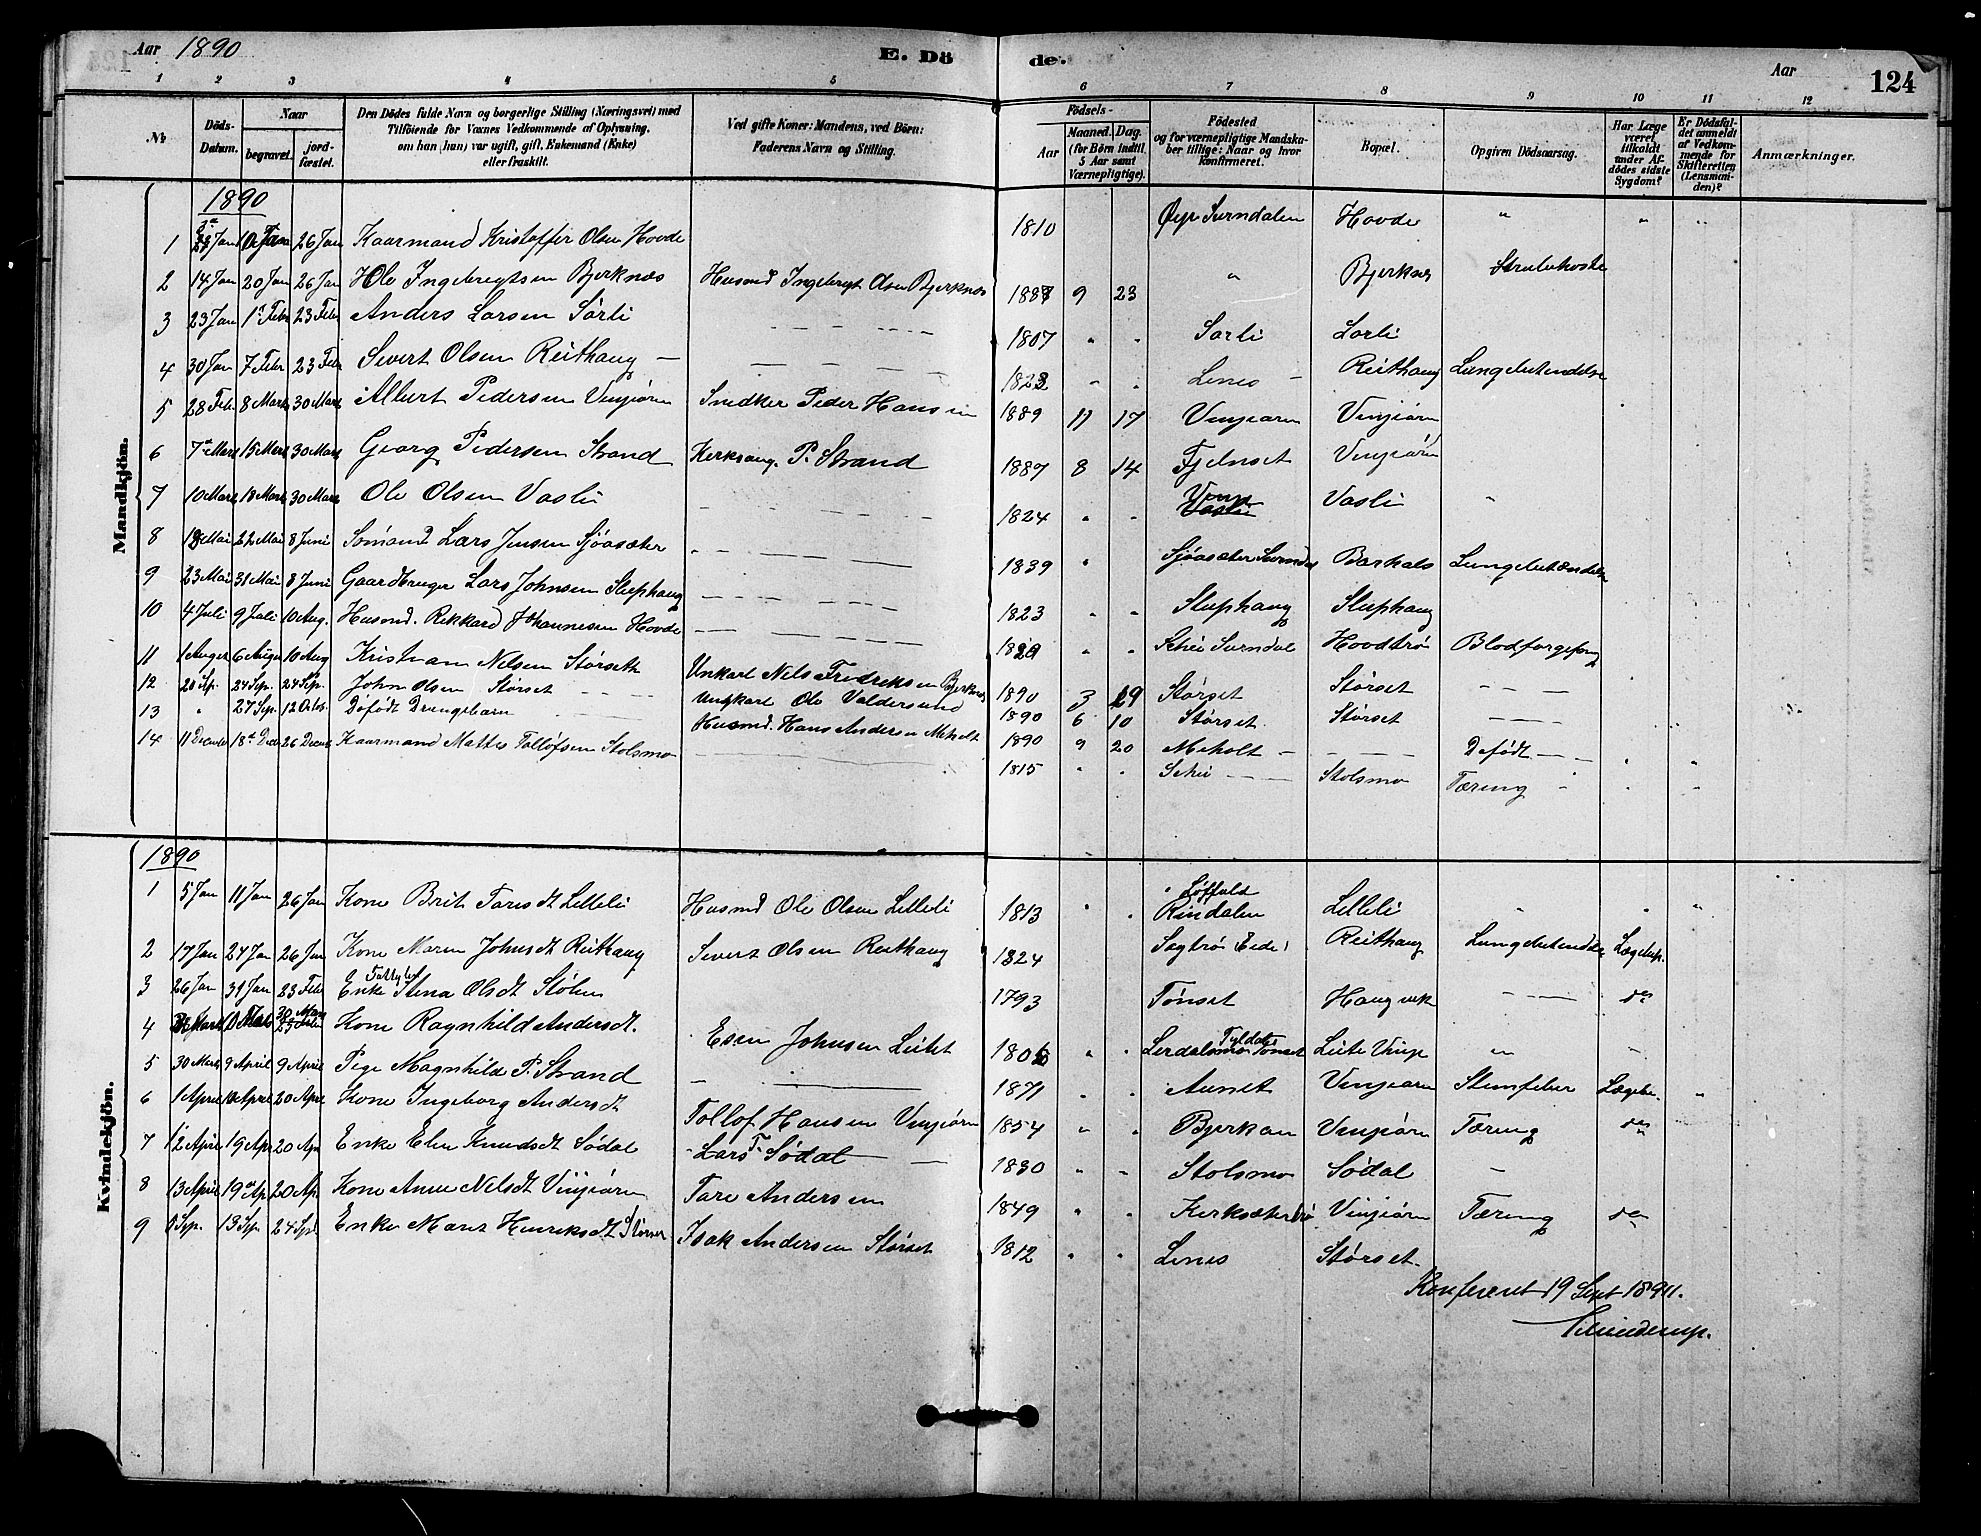 Aar 1890 E. Dö de. Aar 124
1 2 3 4 5 6 7 8 9 10 11 12
№ Döds-Datum. Naar begravet. jordfæstet. Den Dödes fulde Navn og borgerlige Stilling (Næringsvei) med Tilföiende for Voxnes Vedkommende af Oplysning, om han (hun) var ugift, gift, Enkemand (Enke) eller fraskilt. Ved gifte Koner: Mandens, ved Börn: Faderens Navn og Stilling. Födsels- Aar Maaned. Dag. (for Börn indtil 5 Aar samt Værnepligtige). Födested og for værnepligtige Mandskaber tillige: Naar og hvor konfirmeret. Bopæl. Opgiven Dödsaarsag. Har Læge været tilkaldt under Afdödes sidste Sygdom? Er Dödsfaldet anmeldt af Vedkommende for Skifteretten (Lensmanden)? Anmærkninger.
Mandkjön.
1890
1 26 Jan Kaarmand Kristoffer Olsen Hovde 1810 Øye Surndalen Hovde " " "
2 14 Jan 20 Jan 26 Jan Ole Ingebregtsen Bjerknes Husmd Ingebregt Olsen Bjerknes 1887 9 23 " Bjerknes Strubehoste
3 23 Jan 1 Febr 23 Febr Anders Larsen Sørli 1807 " " Sørli Sørli
4 30 Jan 7 Febr 23 Febr Sivert Olsen Reithaug 1822 " " Lenes Reithaug Lungebetendelse
5 28 Feb. 8 Marts 30 Marts Albert Pedersen Vinjeøren Snedker Peder Hansen 1889 11 17 Vinjeøren Vinjeøren
6 7 Marts 15 Marts 30 Marts Georg Pedersen Strand Kerksang. P. Strand 1887 8 14 Fjelnset Vinjeørn
7 10 Marts 18 Marts 30 Marts Ole Olsen Vasli 1824 " " Vasli Vasli "
8 18 Mai 22 Mai 8 Juni Sømand Lars Jensen Sjøasæter 1839 " Sjøasæter Surndal Barhals Lungebetændelse
9 23 Mai 31 Mai 8 Juni Gaardbruger Lars Johnsen Stuphaug 1823 " " Stuphaug Stuphaug
10 4 Juli 9 Juli 10 Aug. Husmd. Rikkard Johannesen Hovde " " Schei Surndal Hovdtrø Blodforgiftning
11 1 August 6 August 10 Aug Kristian Nilsen Størseth Unkarl Nils Fredriksen Bjerknes 1890 3 19 Størset Størset
12 20 Sp. 24 Sep. 24 Sep. John Olsen Størset Ungkarl Ole Valdersund 1890 6 10 Størset Størset
13 " 27 Sep. 12 Octob. Døfødt Drengebarn Husmd. Hans Andersen Meholt 1890 9 20 Meholt Døfødt
14 11 Decemb 18 Dec 26 Decemb Kaarmand Mattis Tollofsen Stolsmo 1815 " " Schei Stolsmo Tæring " "
Kvindekjön.
1890
1 5 Jan 11 Jan 26 Jan Kone Brit Taresdt Lilleli Husmd Ole Olsen Lilleli 1813 " Løffald Rindalen Lilleli " " "
2 17 Jan 24 Jan 26 Jan Kone Maren Johnsdt Reithaug Sivert Olsen Reithaug 1824 Sagtrø Eide Reithaug Lungebetendelse Lægehjp.
3 26 Jan 31 Jan 23 Febr Fattiglem Enke Stina Olsdt Stølen 1793 Tønset Haugvik do
4 Kone Ragnhild Andersdt. Esten Johnsen Leitet " " Leite Vinje "
5 30 Marts 9 April 9 April Pige Magnhild P. Strand 1871 " " Aunet Vinjeøren Slimfeber Lægehj. "
6 1 April 20 Apr Kone Ingeborg Andersdt Tollof Hansen Vinjeøren 1854 " " Bjerkan Vinjeørn Tæring do
7 12 April 19 Apr 20 Apr Enke Elen Knudsdt Sødal Lars T. Sødal 1830 " " Stolsmo Sødal
8 13 April 19 Ap 20 Ap. Kone Anne Nilsdt Vinjeøren Tare Andersen 1849 " " Kerksæterø Vinjeørn Tæring do
9 Sep. 13 Sep. 24 Sept Enke Marit Henriksdt Størset Isak Andersen Størset 1812 " " Lenes Størset
Konfereret 19 Sept 1891.